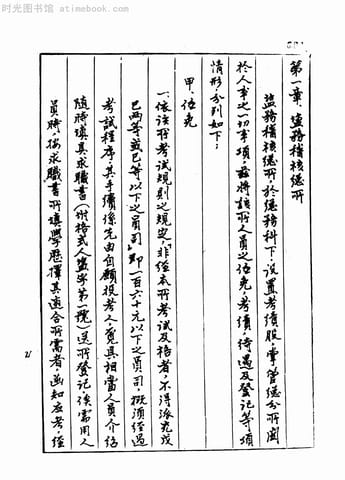 时光图书馆 - atimebook.com
第一章、盐務稽核總所
盐務稽核總所、於總務科下、設置考績股、掌管總分所関
於人事之一切事項、茲將該所人员之任免考績、待遇及登记等項
情形分列如下：
甲、任免
一、依該所考试規則之規定、“非經本所考试及格者、不得派充戊
巳两等或巳等以下之員司”、即一百六十元以下之员司、概須经過
考試程序、其手續係先由自願投考人、覓具相當人员介绍
随時填具求職書（附格式人盐字第一號）送所登记、俟需用人
員時、按求職書所填學歷擇其適合所需者、函知应考、经